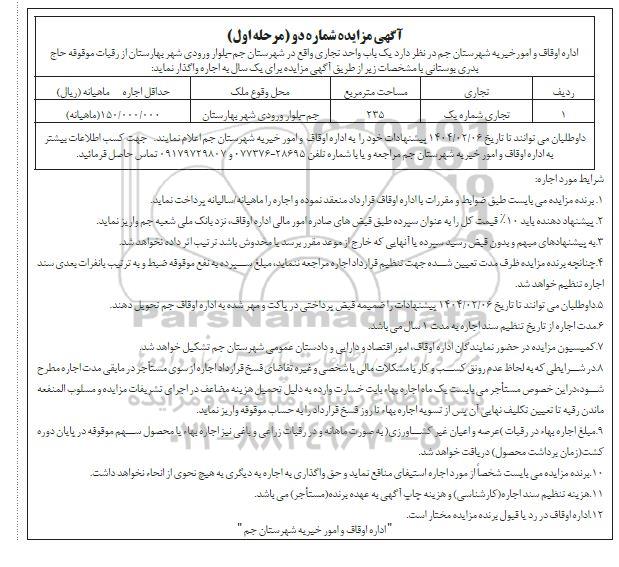 آگهی مزایده شماره دو (مرحله اول)
اداره اوقاف و امور خیریه شهرستان جم در نظر دارد یک باب واحد تجاری واقع در شهرستان جم-بلوار ورودی شهر بهارستان از رقبات موقوفه حاج
بدری بوستانی با مشخصات زیر از طریق آگهی مزایده برای یک سال به اجاره واگذار نماید:
ردیف تجاری مساحت مترمربع محل وقوع ملک حداقل اجاره ماهیانه (ریال)
۱ تجاری شماره یک ۲۳۵ جم-بلوار ورودی شهر بهارستان ۱۵۰/۰۰۰/۰۰۰(ماهیانه)
داوطلبان می توانند تا تاریخ ۱۴۰۴/۰۲/۰۶ پیشنهادات خود را به اداره اوقاف و امور خیریه شهرستان جم اعلام نمایند. جهت کسب اطلاعات بیشتر
به اداره اوقاف و امور خیریه شهرستان جم مراجعه و یا با شماره تلفن ۲۸۶۹۵-۰۷۷۳۷۶ و ۰۹۱۷۹۷۲۹۸۰۷ تماس حاصل فرمائید.
شرایط مورد اجاره:
۱.برنده مزایده می بایست طبق ضوابط و مقررات با اداره اوقاف قرارداد منعقد نموده و اجاره را ماهیانه/سالیانه پرداخت نماید.
۲. پیشنهاد دهنده باید ۱۰٪ قیمت کل را به عنوان سپرده طبق قبض های صادره امور مالی اداره اوقاف، نزد بانک ملی شعبه جم واریز نماید.
۳.به پیشنهادهای مبهم و بدون قبض رسید سپرده یا آنهایی که خارج از موعد مقرر برسد یا مخدوش باشد ترتیب اثر داده نخواهد شد.
۴.چنانچه برنده مزایده ظرف مدت تعیین شده جهت تنظیم قرارداد اجاره مراجعه ننماید، مبلغ سپرده به نفع موقوفه ضبط و به ترتیب با نفرات بعدی سند
اجاره تنظیم خواهد شد.
۵.داوطلبان می توانند تا تاریخ ۱۴۰۴/۰۲/۰۶ پیشنهادات را ضمیمه قبض پرداختی در پاکت و مهر شده به اداره اوقاف جم تحویل دهند.
۶.مدت اجاره از تاریخ تنظیم سند اجاره به مدت ۱ سال می باشد.
۷.کمیسیون مزایده در حضور نمایندگان اداره اوقاف، امور اقتصاد و دارایی و دادستان عمومی شهرستان جم تشکیل خواهد شد.
۸.در شرایطی که به لحاظ عدم رونق کسب و کار یا مشکلات مالی یا شخصی و غیره تقاضای فسخ قرارداد اجاره از سوی مستأجر در مابقی مدت اجاره مطرح
شود،در این خصوص مستأجر می بایست یک ماه اجاره بهاء بابت خسارت وارده به دلیل تحمیل هزینه مضاعف در اجرای تشریفات مزایده و مسلوب المنفعه
ماندن رقبه تا تعیین تکلیف نهایی آن پس از تسویه اجاره بهاء تا روز فسخ قرارداد را به حساب موقوفه واریز نماید.
۹.مبلغ اجاره بهاء در رقبات )عرصه و اعیان غیر کشاورزی( به صورت ماهانه و در رقبات زراعی و باغی نیز اجاره بهاء یا محصول سهم موقوفه در پایان دوره
کشت(زمان برداشت محصول) دریافت خواهد شد.
۱۰.برنده مزایده می بایست شخصاً از مورد اجاره استیفای منافع نماید و حق واگذاری به اجاره به دیگری به هیچ نحوی از انحاء نخواهد داشت.
۱۱.هزینه تنظیم سند اجاره(کارشناسی) و هزینه چاپ آگهی به عهده برنده(مستأجر) می باشد.
۱۲.اداره اوقاف در رد یا قبول برنده مزایده مختار است.
"اداره اوقاف و امور خیریه شهرستان جم"
ParsNamadData
پایگاه اطلاع رسانی مناقصه و مزایده
۰۲۱-۸۸۳۴۹۶۷۰-۵